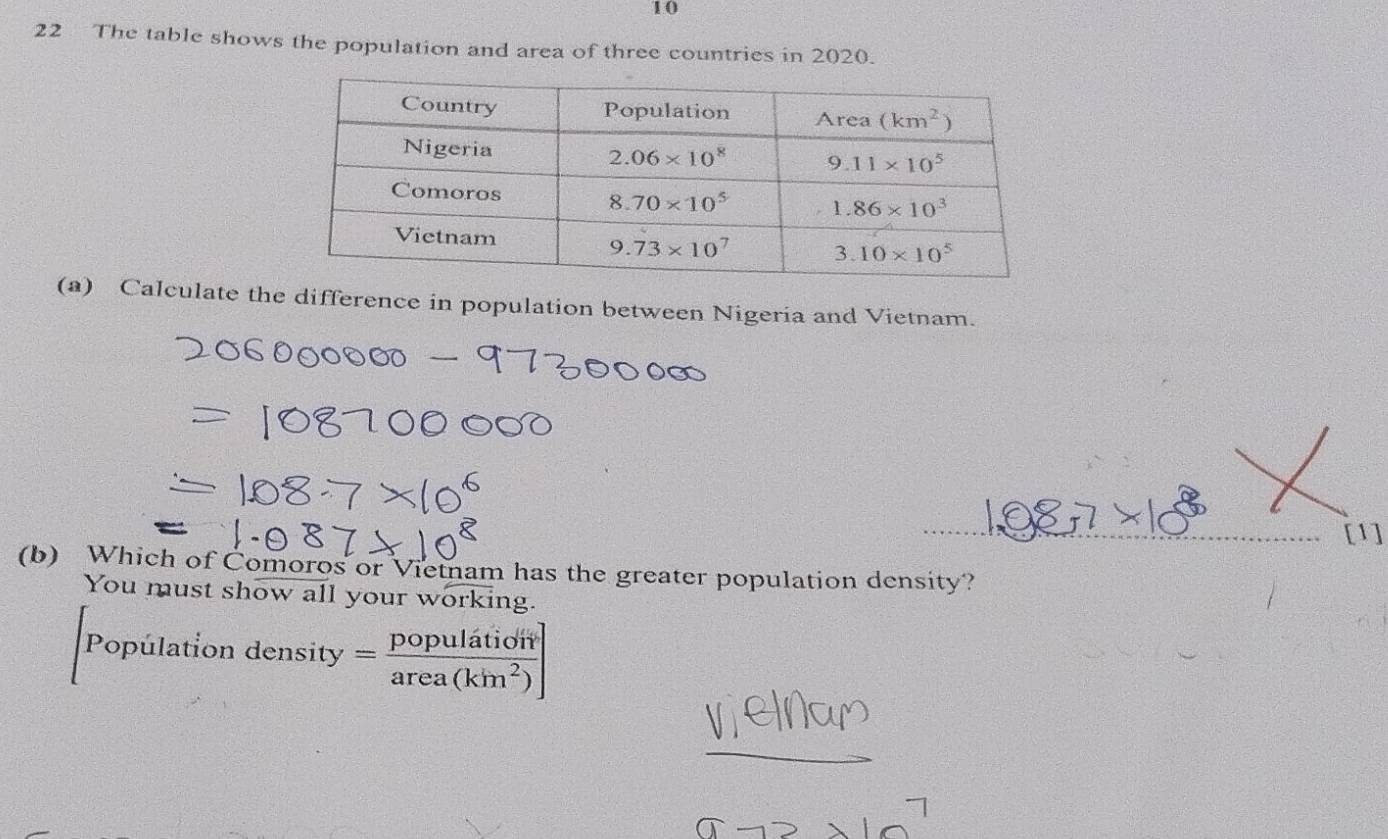 10
22 The table shows the population and area of three countries in 2020.
Country Population Area (km²)
Nigeria 2.06 × 10⁸ 9.11 × 10⁵
Comoros 8.70 × 10⁵ 1.86 × 10³
Vietnam 9.73 × 10⁷ 3.10 × 10⁵
(a) Calculate the difference in population between Nigeria and Vietnam.
206000000 - 97300000
= 108700000
= 108.7 × 10⁶
= 1.087 × 10⁸
[1]
(b) Which of Comoros or Vietnam has the greater population density?
You must show all your working.
[Population density = population / area (km²)]
Vietnam